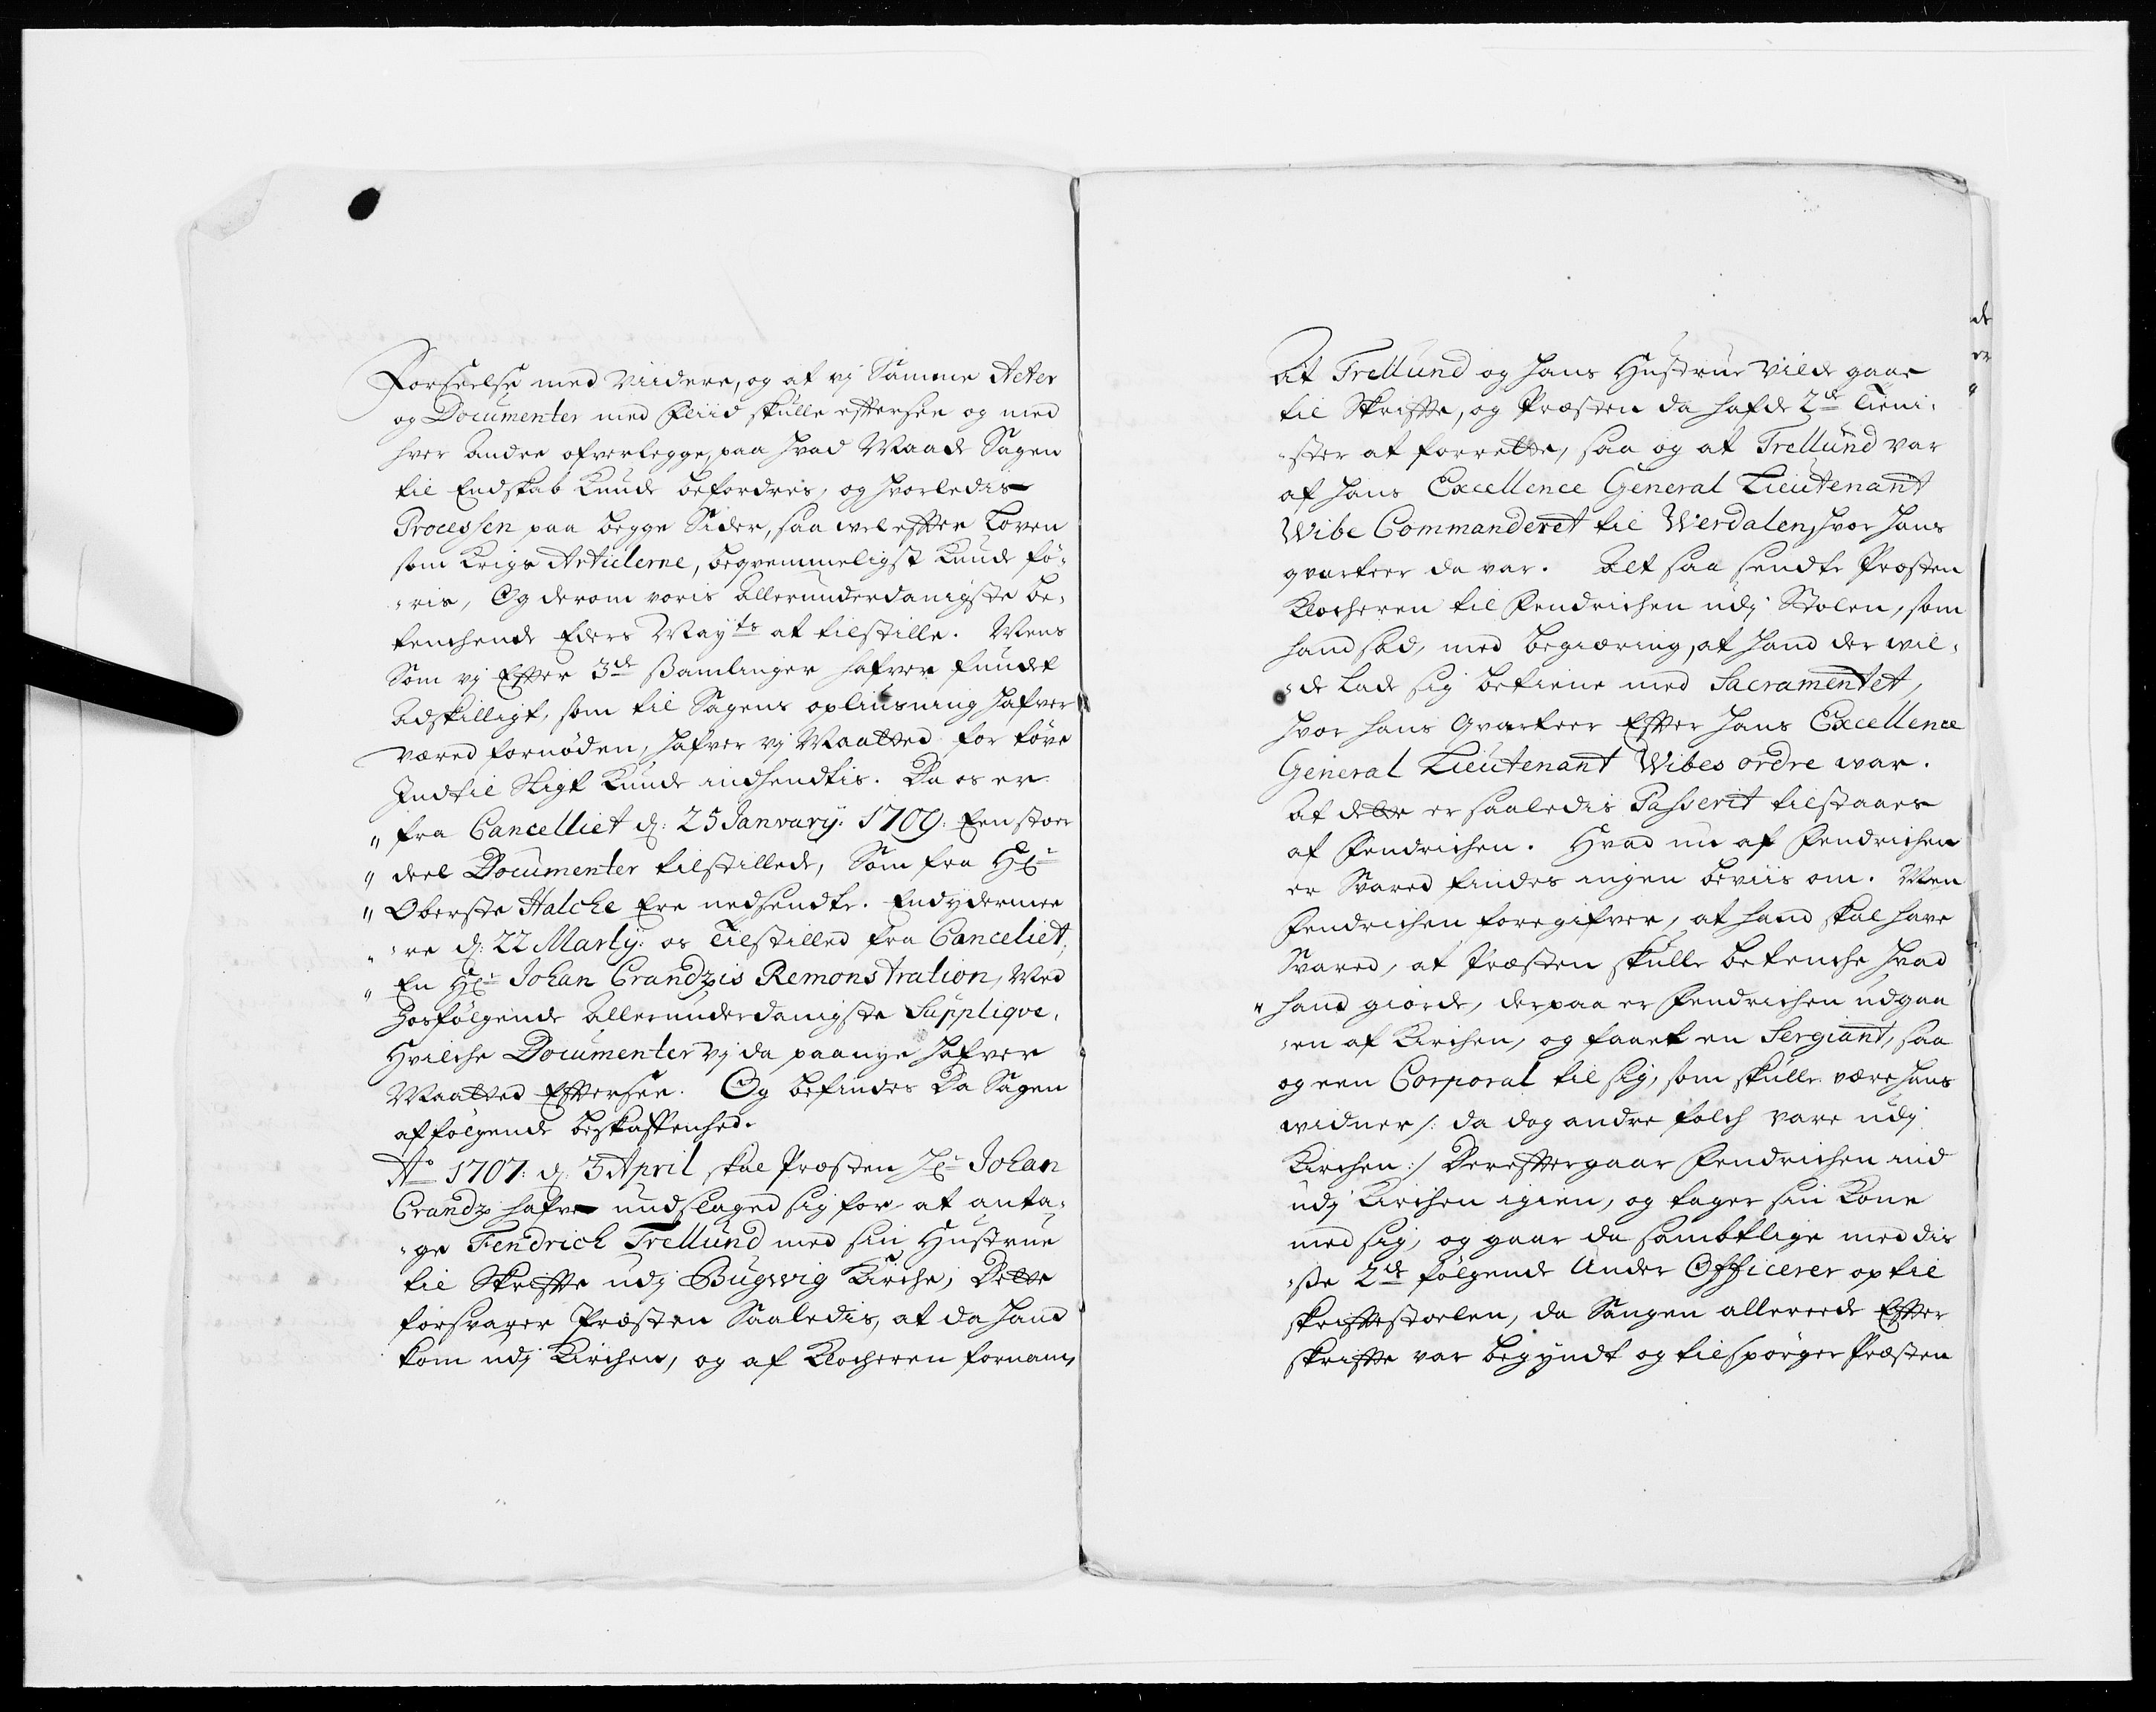 Forseelse med viidere, og at vj Samme Acter
og Documenter med Fliid skulle effersee og med
hver Andre ofverlegge, paa hvad Maade Sagen
til Endskab Kunde befordris, og hvorledis
Processen paa begge Sider, saa wel effter Loven
som Krigs Articlerne, beqvemmeligst Kunde fø-
-ris, Og derom voris Allerunderdanigste be-
tenchende Eders Mayts at tilstille. Mens
Som vj Effter 3de Samlinger hafver fundet
Adskilligt, som til Sagens opliusning hafver
væred fornøden, hafver vj Maatted for tøve
Indtil Sligt Kunde indsendtis. Da os er
" fra Cancelliet d: 25 January: 1709: Een stoer
" deel Documenter tilstillede, Som fra Hr
" Oberste Halche Ere nedsendte. Endydermee
" -re d: 22 Martij: os Tilstilled fra Canceliet,
" En Hr Johan Crandzis Remonstration, Med
Hosfølgende Allerunderdanigste Supplique.
Hvilche Documenter vj da paanye hafver
Maatted Efftersee. Og befindes Da Sagen
af følgende beskaffenhed.
Ao 1707: d: 3 April skal Præsten Hr Johan
Crandz hafve undslaged sig for at anta-
-ge Fendrich Trellund med sin Hustrue
til Skriffte udj Bugwig Kirche, Dette
forsvarer Præsten Saaledis, at da hand
kom udj Kirchen, og af Klocheren fornam,
At Trellund og hans Hustrue vilde gaae
til Skriffte, og Præsten da hafde 2de Tieni-
-ster at forrette, saa og at Trellund var
af hans Excellence General Lieutenant
Wibe Commanderet til Werdalen, hvor hans
qvarteer da var. Alt saa sendte Præsten
Klocheren til Fendrichen udj Stolen, som
hand sad, med begiæring, at hand der wil-
-de lade sig betiene med Sacramentet,
hvor hans Qvarteer Effter hans Excellence
General Lieutenant Wibes ordre war.
At dette er saaledis Passerit tilstaaes
af Fendrichen. Hvad nu af Fendrichen
er Svared findes ingen beviis om. Men
Fendrichen foregifver, at hand skal have
Svared, at Præsten skulle betenche hvad
" hand giorde, derpaa er Fendrichen udgaa
-en af Kirchen, og faaet en Sergiant, saa
og een Corporal til sig, som skulle være hans
widner /: da dog andre folch vare udj
Kirchen :/ Dereffter gaar Fendrichen ind
udj Kirchen igien, og tager sin Kone
med sig, og gaar da sambtlige med dis
-se 2de følgende Under Officerer op til
skrifftestoelen, da Sangen allereede Effter
skriffte var begyndt og tilspørger Præsten
de
er